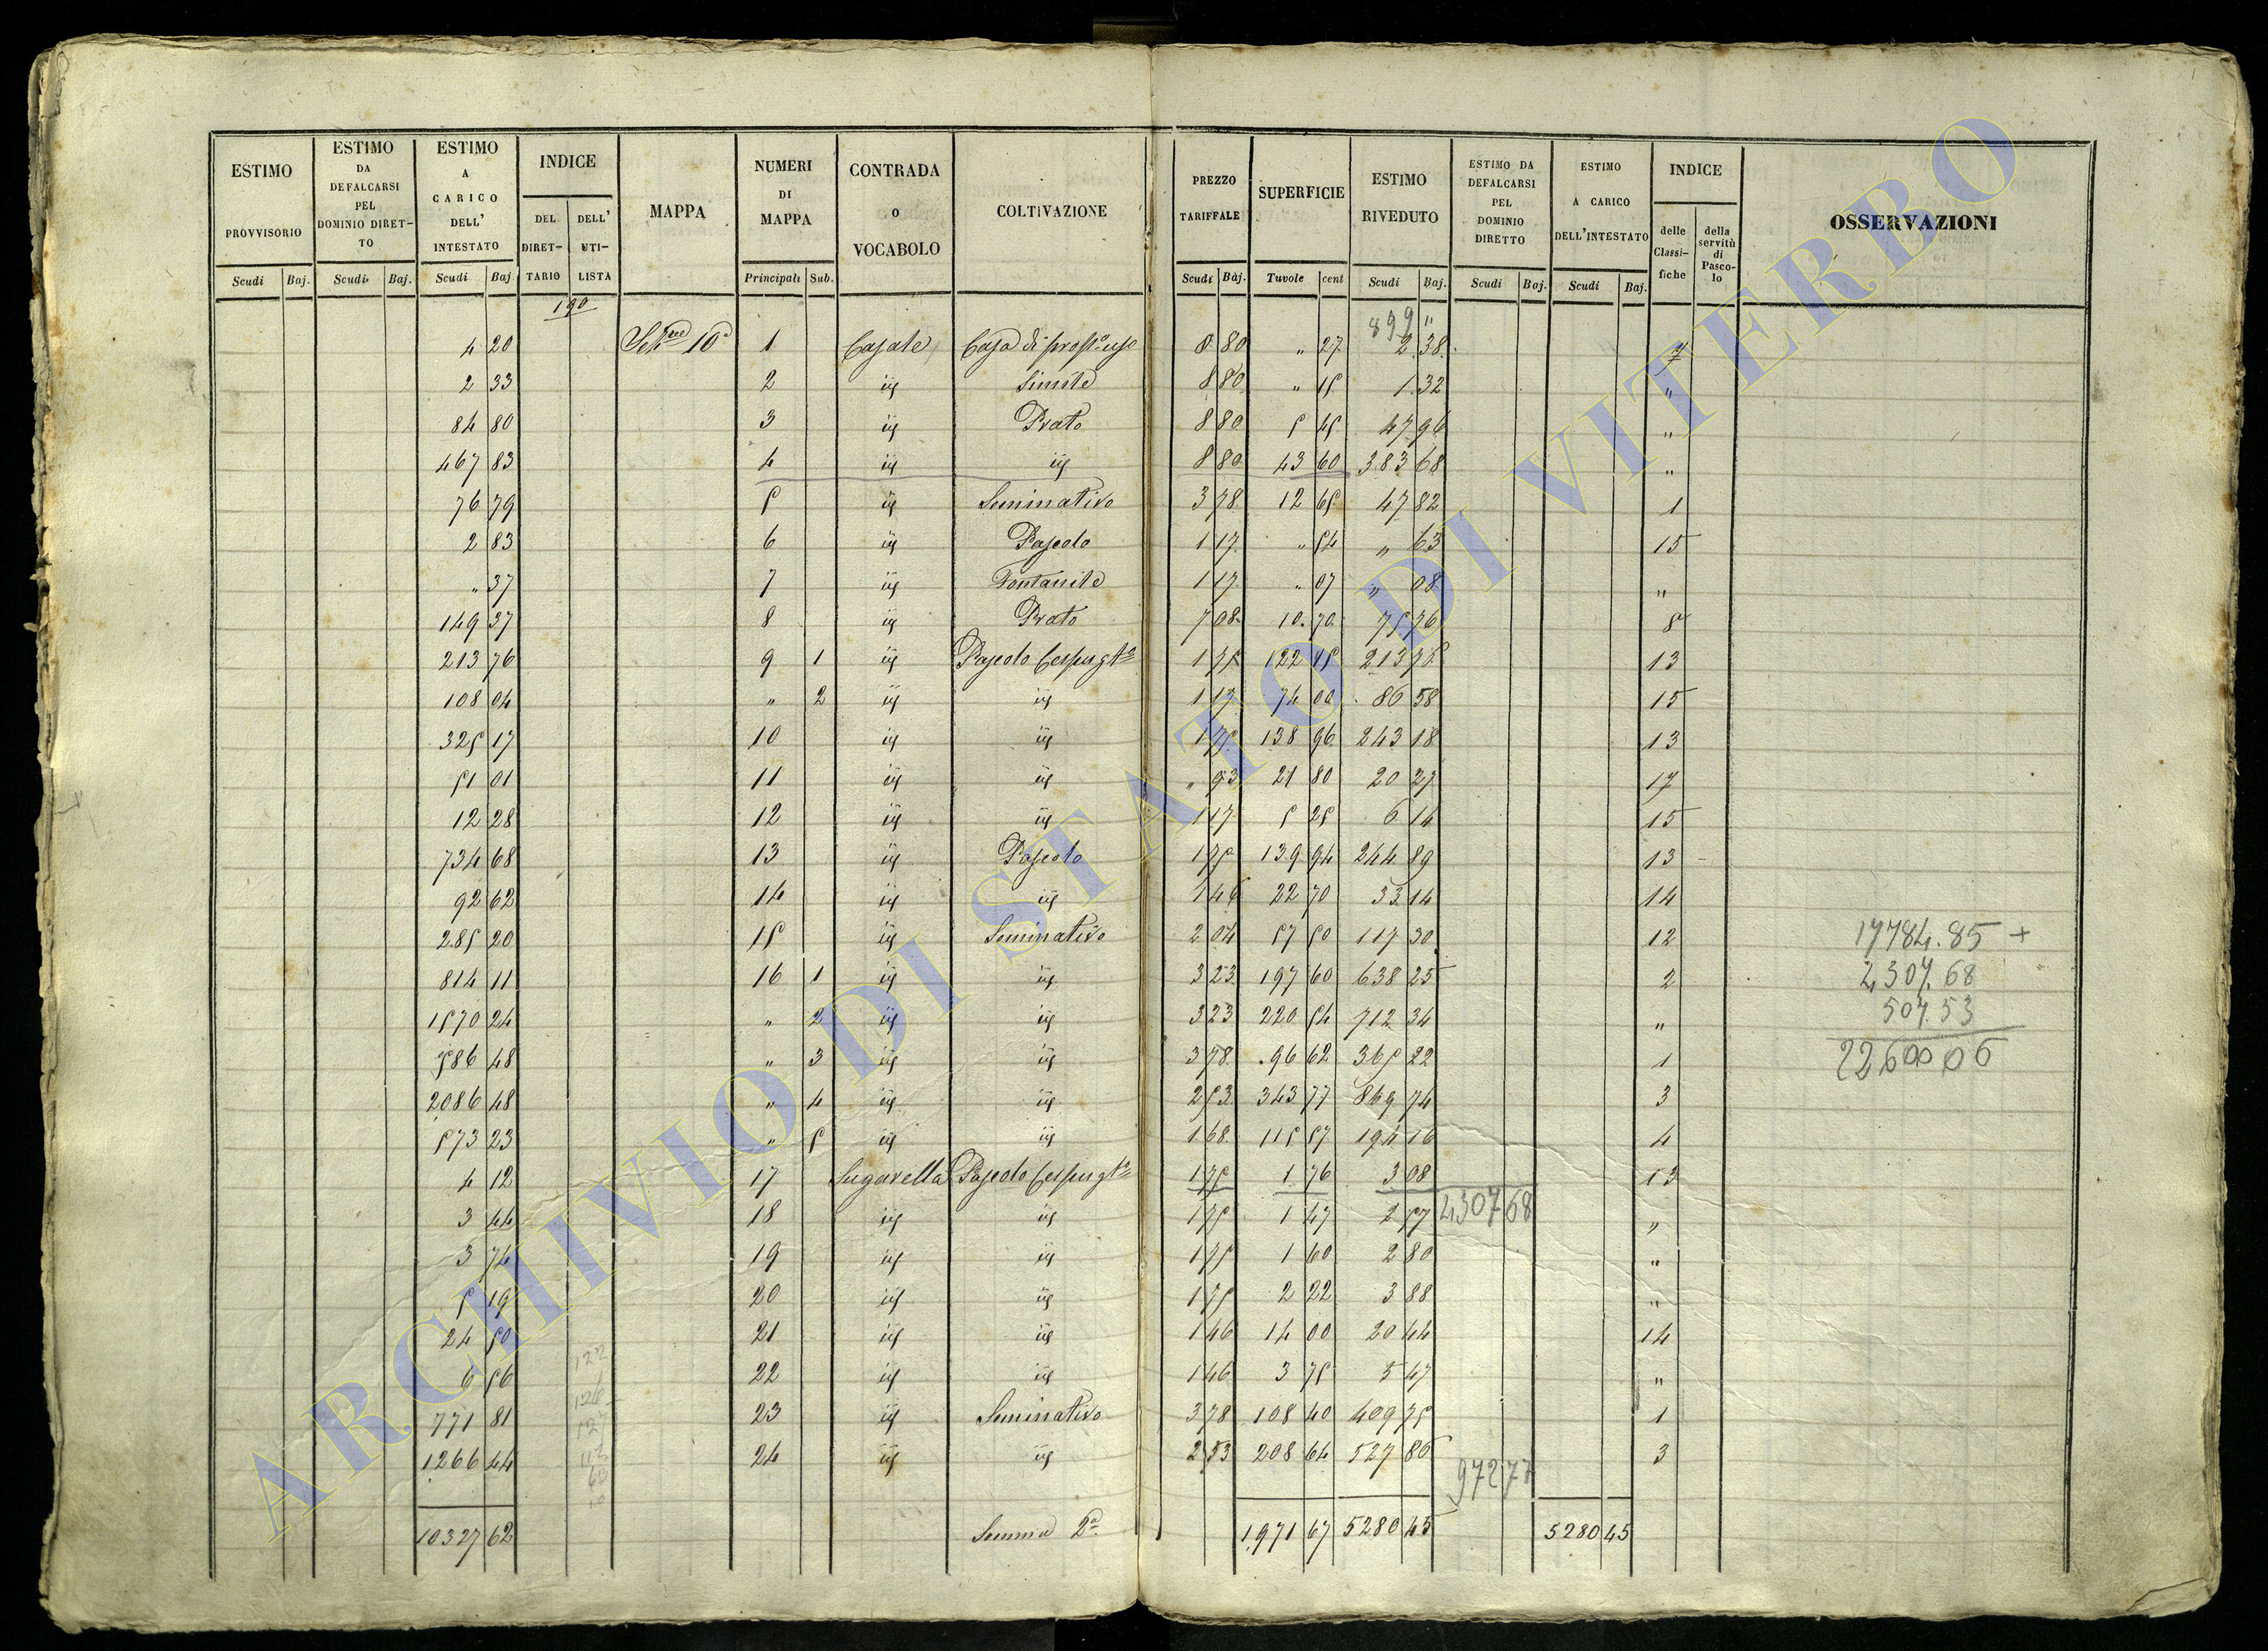 ESTIMO PROVVISORIO Scudi Baj.
ESTIMO DA DEFALCARSI PEL DOMINIO DIRET-TO Scudi Baj.
ESTIMO A CARICO DELL' INTESTATO Scudi Baj
INDICE DEL DIRET-TARIO DELL' UTI-LISTA
MAPPA
NUMERI DI MAPPA Principali Sub.
CONTRADA O VOCABOLO
COLTIVAZIONE
PREZZO TARIFFALE Scudi Baj.
SUPERFICIE Tavole cent
ESTIMO RIVEDUTO Scudi Baj.
ESTIMO DA DEFALCARSI PEL DOMINIO DIRETTO Scudi Baj.
ESTIMO A CARICO DELL'INTESTATO Scudi Baj.
INDICE delle Classi-fiche della servitù di Pasco-lo
OSSERVAZIONI
190
899 "
4 20 Sez.ne 10a 1 Casale Casa di prop.o uso 8 80 " 27 2 38 7
2 33 2 iij Simile 8 80 " 15 1 32 "
84 80 3 iij Prato 8 80 5 45 47 96 "
467 83 4 iij iij 8 80 43 60 383 68 "
76 79 5 iij Seminativo 3 78 12 65 47 82 1
2 83 6 iij Pascolo 1 17 " 54 " 63 15
" 37 7 iij Fontanile 1 17 " 07 " 08 "
149 37 8 iij Prato 7 08 10 70 75 76 8
213 76 9 1 iij Pascolo Cespugto 1 75 122 15 213 76 13
108 04 " 2 iij iij 1 17 74 00 86 58 15
325 17 10 iij iij 1 75 138 96 243 18 13
51 01 11 iij iij " 93 21 80 20 27 17
12 28 12 iij iij 1 17 5 25 6 14 15
734 68 13 iij Pascolo 1 75 139 94 244 89 13
92 62 14 iij iij 1 46 22 70 33 14 14
285 20 15 iij Seminativo 2 04 57 50 117 30 12 17784.85 +
814 11 16 1 iij iij 3 23 197 60 638 25 2 2307.68
1570 24 " 2 iij iij 3 23 220 54 712 34 " 507.53
586 48 " 3 iij iij 3 78 96 62 365 22 1 22600,06
2086 48 " 4 iij iij 2 53 343 77 869 74 3
573 23 " 5 iij iij 1 68 115 57 194 16 4
4 12 17 Sugarella Pascolo Cespugto 1 75 1 76 3 08 13
3 44 18 iij iij 1 75 1 47 2 57 2307 68 "
3 74 19 iij iij 1 75 1 60 2 80 "
5 19 20 iij iij 1 75 2 22 3 88 "
24 50 21 iij iij 1 46 14 00 20 44 14
6 56 122 22 iij iij 1 46 3 75 5 47 "
771 81 23 iij Seminativo 3 78 108 40 409 75 1
1266 44 24 iij iij 2 53 208 64 527 86 3
972 77
10327 62 Somma 2a 1,971 67 5280 45 5280 45
ARCHIVIO DI STATO DI VITERBO